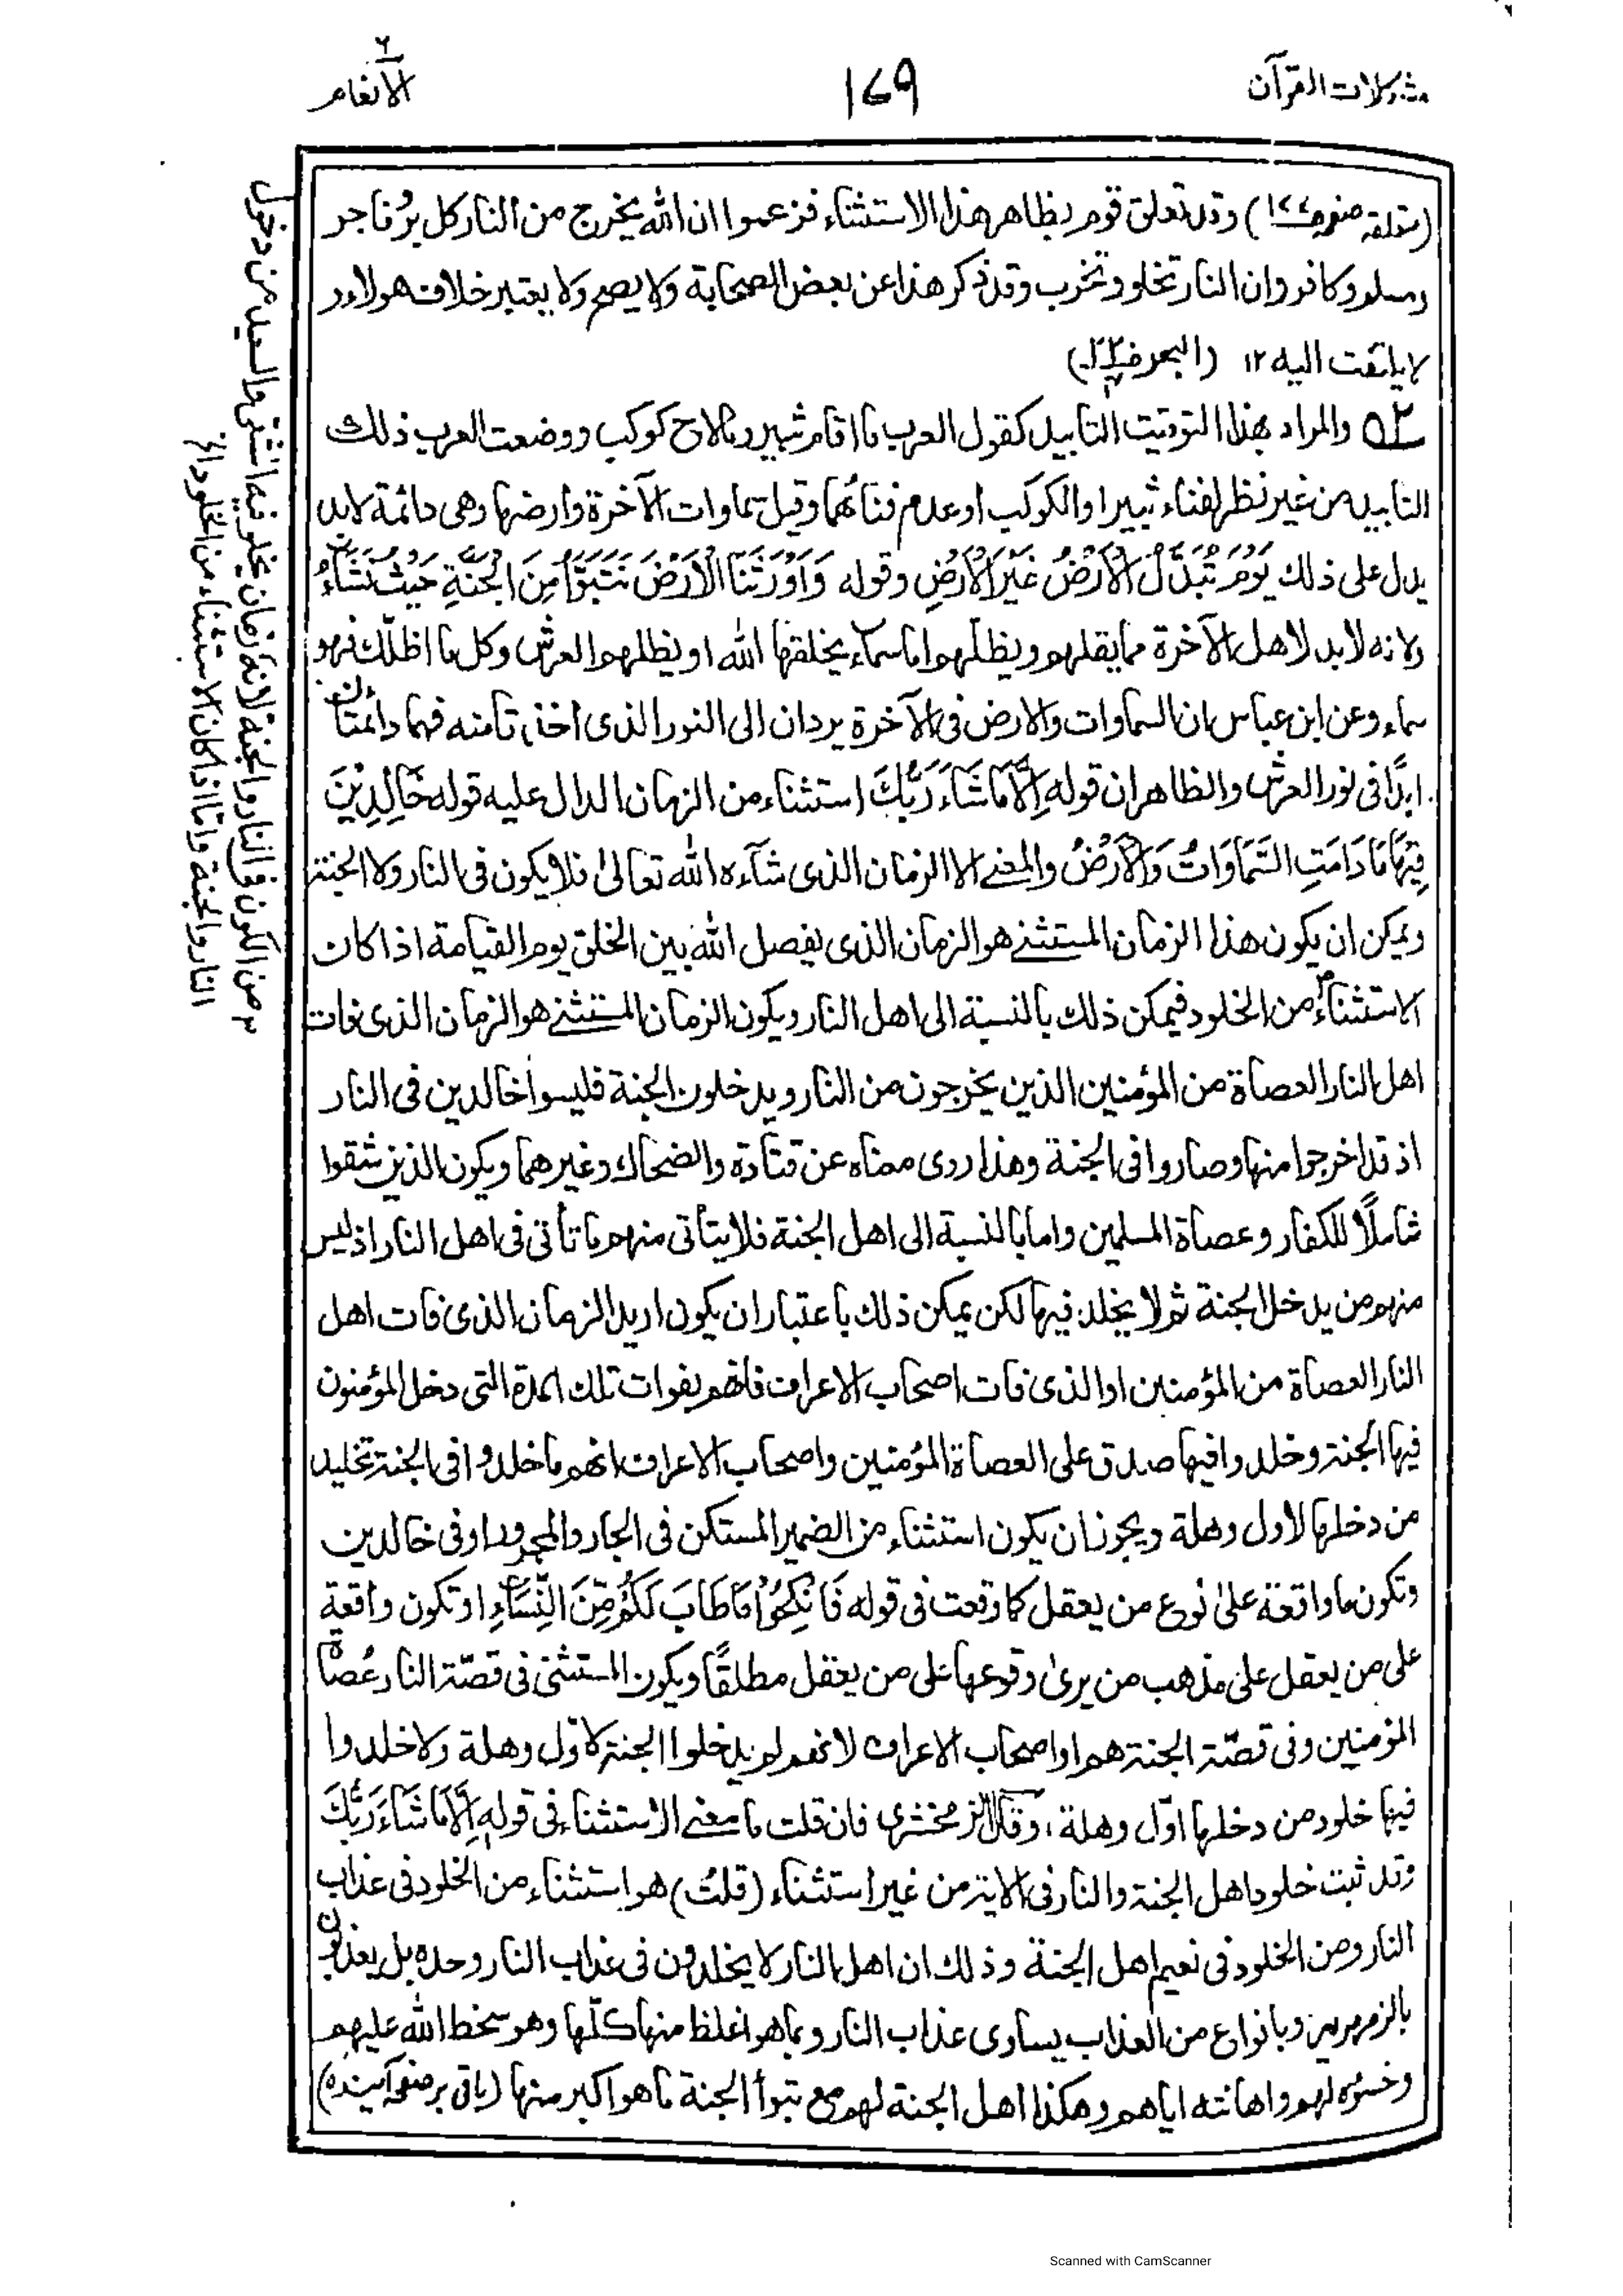 مشكلات القرآن
١٧٩
٦
الانعام
(متعلقہ صفحہ ١٧٧) وقد تعلق قوم بظاهر هذا الاستثناء فزعموا ان الله يخرج من النار كل بر وفاجر
ومسلم وكافر وان النار تخلو وتخرب وقد ذكر هذا عن بعض الصحابة ولا يصح ولا يعتبر خلاف هولاء و
لا يلتفت اليه ١٢ (البحر
٥٢ والمراد بهذا التوقيت التابيد كقول العرب ما اقام ثبير وما لاح كوكب ووضعت العرب ذلك
التابيد من غير نظر لفناء ثبير او الكوكب او عدم فنائهما وقيل سماوات الآخرة وارضها وهى دائمة لابد
يدل على ذلك يَوْمَ تُبَدَّلُ الْاَرْضُ غَيْرَ الْاَرْضِ وقوله وَاَوْرَثَنَا الْاَرْضَ نَتَبَوَّأُ مِنَ الْجَنَّةِ حَيْثُ نَشَاءُ
ولانه لابد لاهل الآخرة مما يقلهم ويظلهم اما سماء يخلقها الله او يظلهم العرش وكل ما اظلك فهو
سماء وعن ابن عباس ان السماوات والارض فى الآخرة يردان الى النور الذى اخذتا منه فهما دائمتان
ابدًا فى نور العرش والظاهر ان قوله اِلَّا مَا شَاءَ رَبُّكَ استثناء من الزمان الدال عليه قوله خَالِدِيْنَ
فِيْهَا مَا دَامَتِ السَّمَاوَاتُ وَالْاَرْضُ والمعنى الا الزمان الذى شآءه الله تعالىٰ فلا يكون فى النار ولا الجنة
ويمكن ان يكون هذا الزمان المستثنى هو الزمان الذى يفصل الله بين الخلق يوم القيامة اذا كان
الاستثناء من الخلود فيمكن ذلك بالنسبة الى اهل النار ويكون الزمان المستثنى هو الزمان الذى فات
اهل النار العصاة من المؤمنين الذين يخرجون من النار ويدخلون الجنة فليسوا خالدين فى النار
اذ قد اخرجوا منها وصاروا فى الجنة وهذا روى معناه عن قتادة والضحاك وغيرهما ويكون الذين شقوا
شاملًا للكفار وعصاة المسلمين واما بالنسبة الى اهل الجنة فلا يتأتى منهم ما تأتى فى اهل النار اذ ليس
منهم من يدخل الجنة ثم لا يخلد فيها لكن يمكن ذلك باعتبار ان يكون اريد الزمان الذى فات اهل
النار العصاة من المؤمنين او الذى فات اصحاب الاعراف فانهم بفوات تلك المدة التى دخل المؤمنون
فيها الجنة وخلدوا فيها صدق على العصاة المؤمنين واصحاب الاعراف انهم ما خلدوا فى الجنة تخليد
من دخلها لاول وهلة ويجوز ان يكون استثناء من الضمير المستكن فى الجار والمجرور او فى خالدين
وتكون ما واقعة علىٰ نوع من يعقل كما وقعت فى قوله فَانْكِحُوْا مَا طَابَ لَكُمْ مِّنَ النِّسَآءِ او تكون واقعة
على من يعقل على مذهب من يرىٰ وقوعها على من يعقل مطلقًا ويكون المستثنى فى قصّة النار عُصاة
المؤمنين وفى قصّة الجنة هم او اصحاب الاعراف لانهم لم يدخلوا الجنة لاوّل وهلة ولا خلدوا
فيها خلود من دخلها اوّل وهلة، وقال الزمخشرى فان قلت ما معنى الاستثناء فى قوله اِلَّا مَا شَآءَ رَبُّكَ
وقد ثبت خلود اهل الجنة والنار فى الاية من غير استثناء (قلتُ) هو استثناء من الخلود فى عذاب
النار ومن الخلود فى نعيم اهل الجنة وذلك ان اهل النار لا يخلدون فى عذاب النار وحده بل يعذبون
بالزمهرير وبانواع من العذاب يساوى عذاب النار وبما هو اغلظ منها كلّها وهو سخط الله عليهم
وخسؤه لهم واهانته اياهم وهكذا اهل الجنة لهم مع تبوأ الجنة ما هو اكبر منها (باقى بر صفحہ آئيندہ)
من الكون فى النار والجنة لانه زمان يخلو فيه الشقى والسعيد من دخول
النار والجنة واما اذا كان الاستثناء من الخلود الخ
Scanned with CamScanner